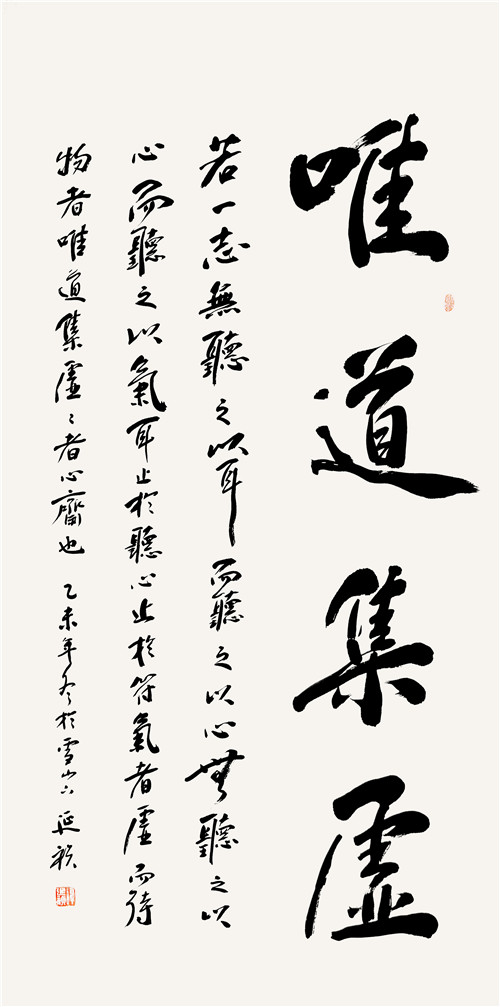 唯道集虛
若一志無聽之以耳而聽之以心無聽之以
心而聽之以氣耳止於聽心止於符氣者虛而待
物者唯道集虛〻者心齋也 乙未年冬於雪山 延